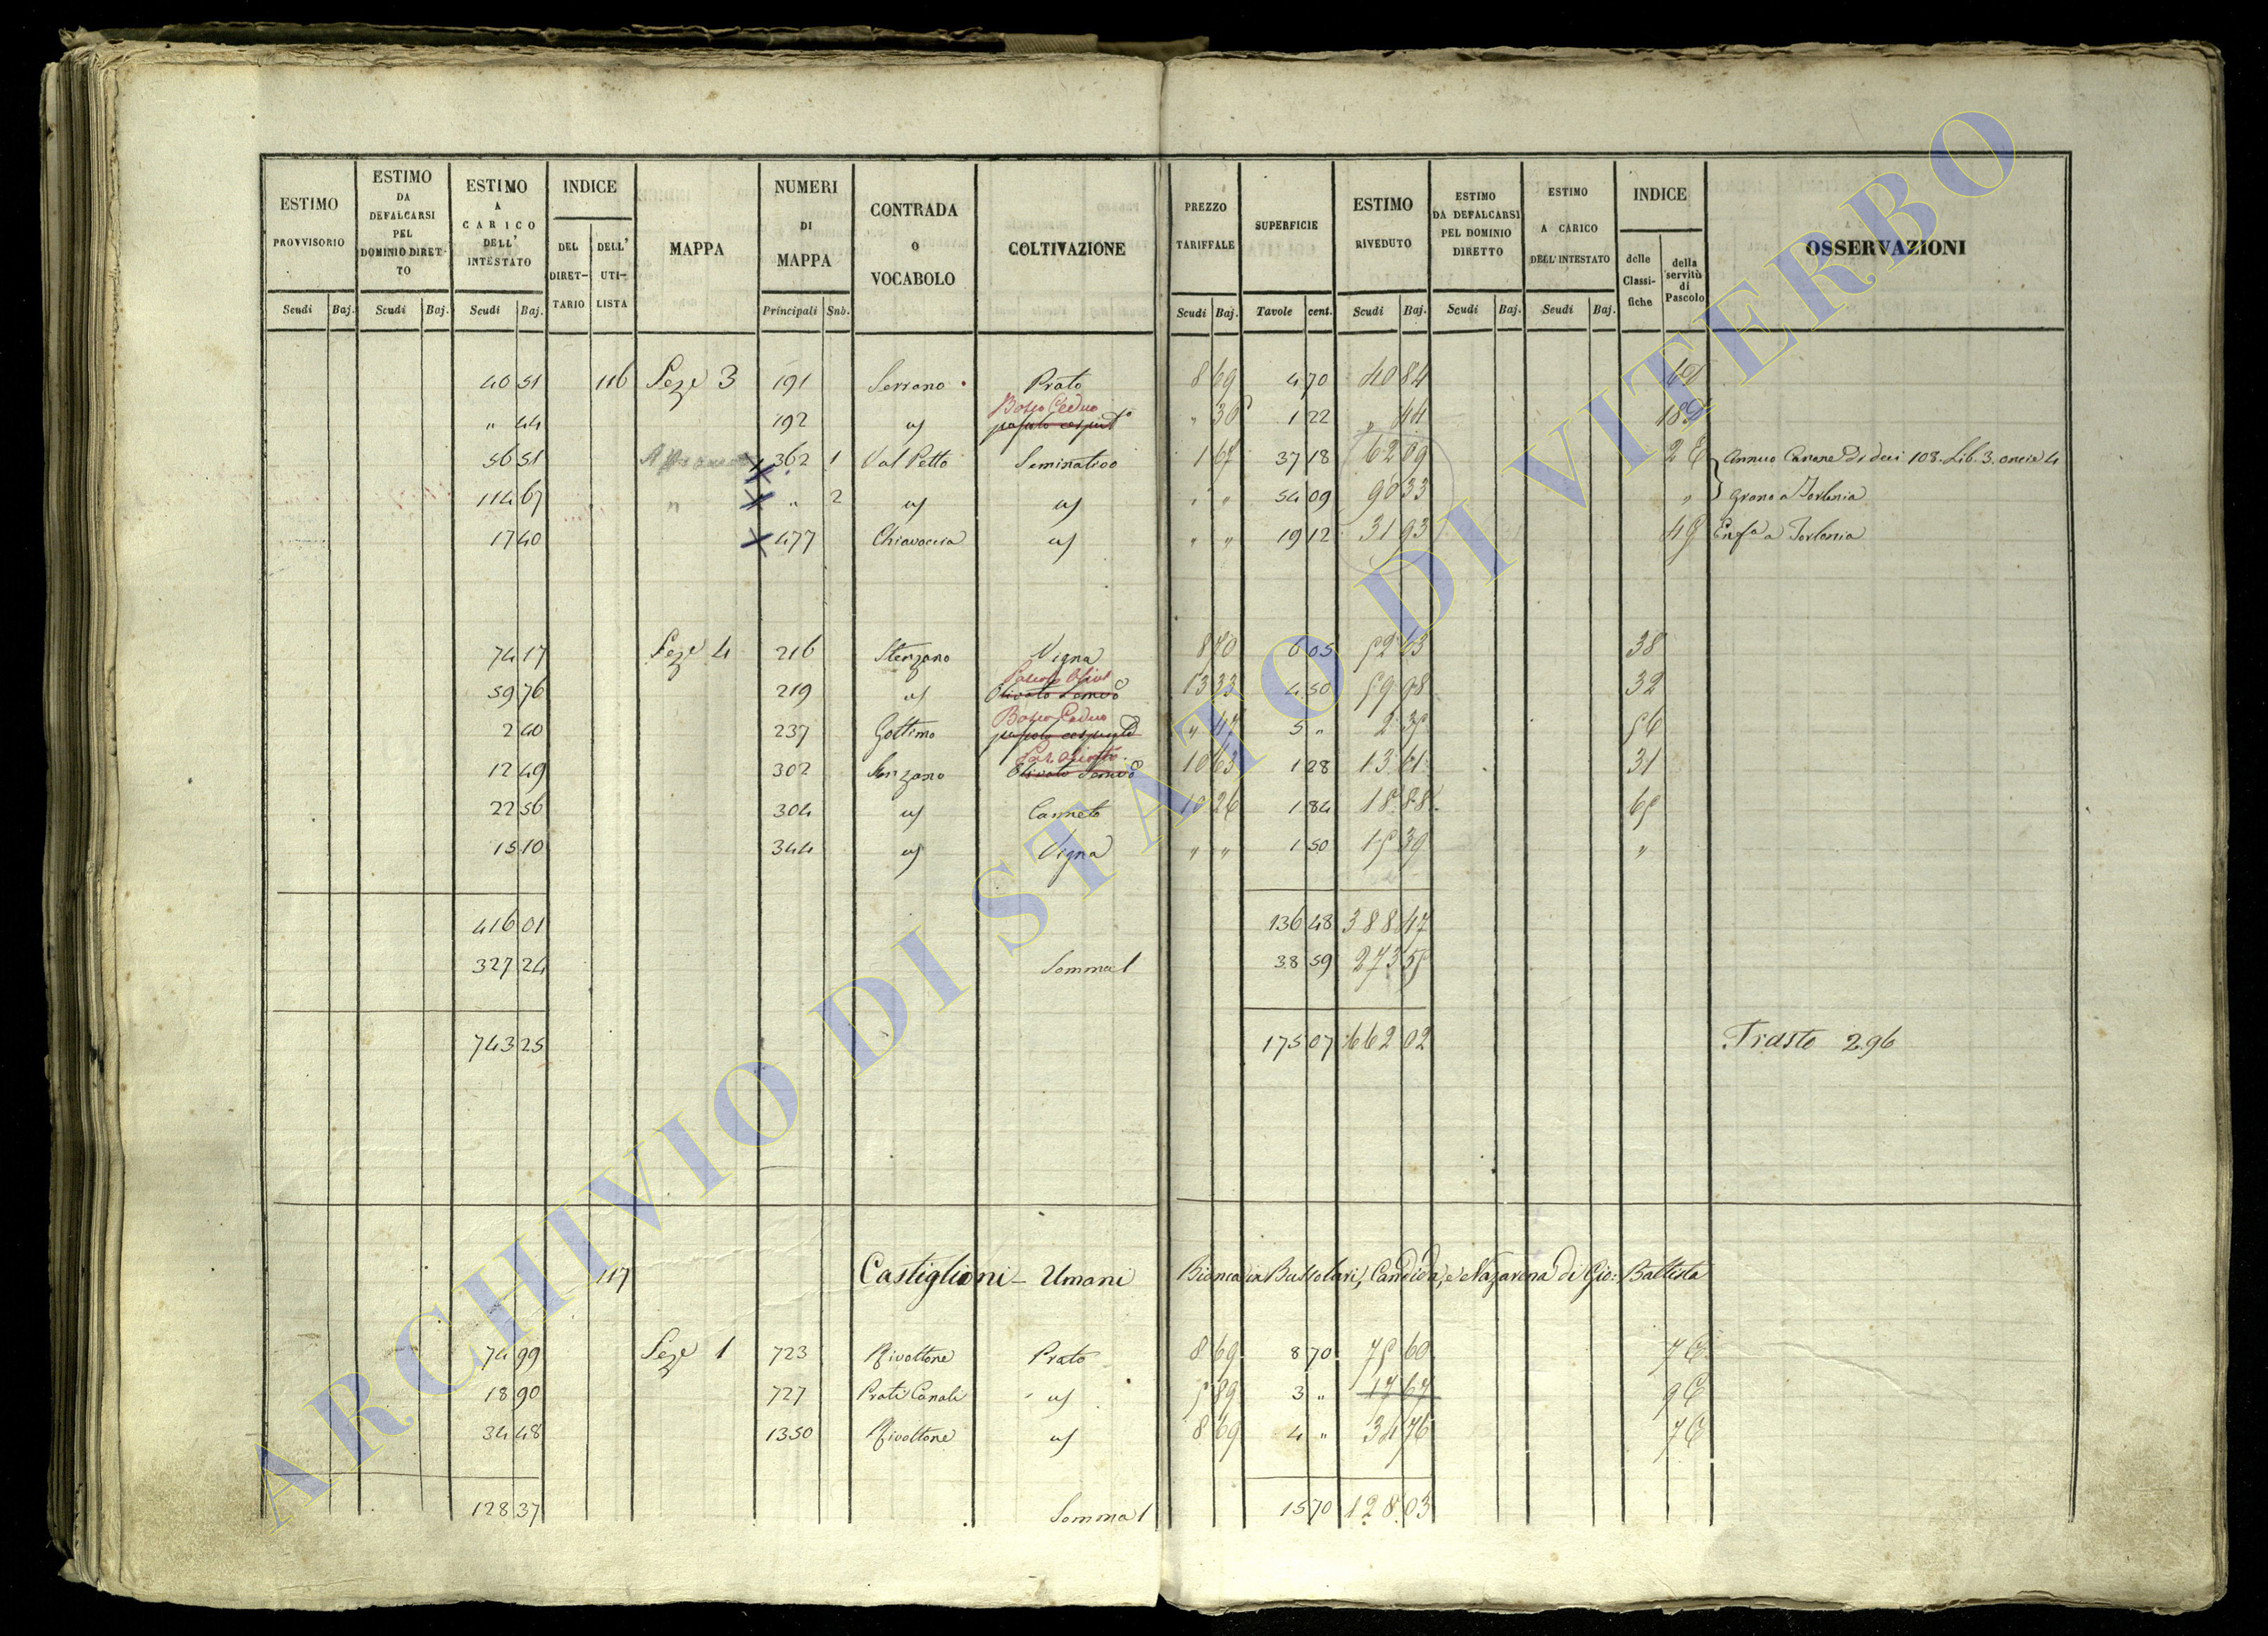 ESTIMO PROVVISORIO | ESTIMO DA DEFALCARSI PEL DOMINIO DIRET-TO | ESTIMO A CARICO DELL' INTESTATO | INDICE | MAPPA | NUMERI DI MAPPA | CONTRADA O VOCABOLO | COLTIVAZIONE | PREZZO TARIFFALE | SUPERFICIE | ESTIMO RIVEDUTO | ESTIMO DA DEFALCARSI PEL DOMINIO DIRETTO | ESTIMO A CARICO DELL'INTESTATO | INDICE | OSSERVAZIONI
DEL DIRET-TARIO | DELL' UTI-LISTA | delle Classi-fiche | della servitù di Pascolo
Scudi | Baj. | Scudi | Baj. | Scudi | Baj. | Principali | Sub. | Scudi | Baj. | Tavole | cent. | Scudi | Baj. | Scudi | Baj. | Scudi | Baj.
40 51 116 Seze 3 191 Serrano Prato 8 69 4 70 40 84
Bosco Ceduo
" 44 192 1 22 " 44
56 51 362 1 Val Petto Seminativo 1 67 37 18 62 09 Annuo Canone di 108. Lib. 3. oncie 4
114 67 " " 2 " " 54 09 90 33 " grano a Torlonia
17 40 477 Chiavaccia " " 19 12 31 93 Enfa a Torlonia
74 17 Seze 4 216 Stenzano Vigna 6 05 38
59 76 219 Olivato 13 33 4 50 59 98 32
Bosco Ceduo
2 40 237 Gottimo " 47 5 " 2 35 56
12 49 302 Stenzano Olivato 10 63 1 28 13 61 31
22 56 304 Canneto 10 26 1 84 18 88 65
15 10 344 Vigna " " 1 50 15 39 "
416 01 136 48 388 47
327 24 Somma 1 38 59 273 55
743 25 175 07 662 02 Trasto 296
117 Castiglioni - Umani Bianca in Bussolari, Candida, e Nazarena di Gio: Battista
74 99 Seze 1 723 Rivoltone Prato 8 69 8 70 75 60 7 E
18 90 727 Prati Canali 5 89 3 " 17 67 9 E
34 48 1350 Rivoltone 8 69 4 " 34 76 7 E
128 37 Somma 1 15 70 128 03
ARCHIVIO DI STATO DI VITERBO